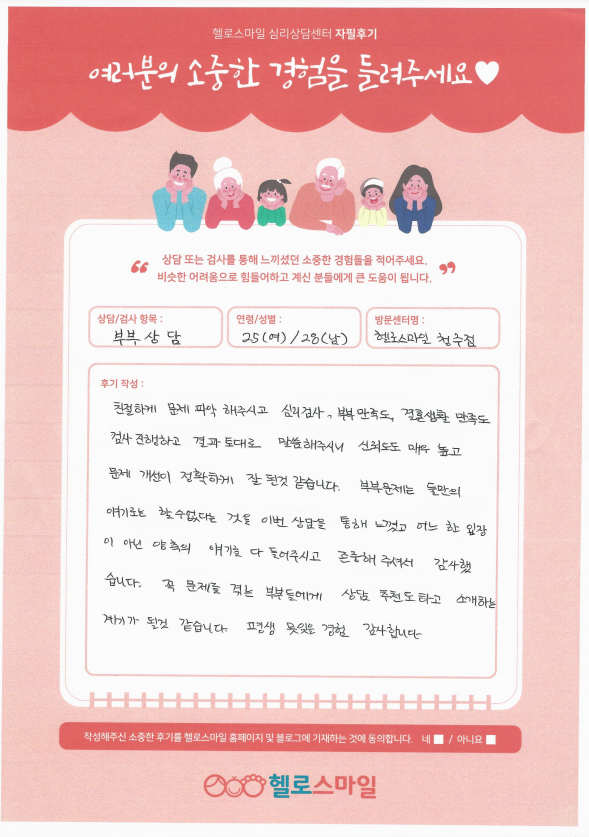 헬로스마일 심리상담센터 자필후기
여러분의 소중한 경험을 들려주세요
상담 또는 검사를 통해 느끼셨던 소중한 경험들을 적어주세요.
비슷한 어려움으로 힘들어하고 계신 분들에게 큰 도움이 됩니다.
상담/검사 항목 :
부부 상담
연령/성별 :
25(여) / 28(남)
방문센터명 :
헬로스마일 청주점
후기 작성 :
친절하게 문제 파악 해주시고 심리검사, 부부 만족도, 결혼생활 만족도
검사 진행하고 결과 토대로 말씀해주시니 신뢰도도 매우 높고
문제 개선이 정확하게 잘 된것 같습니다. 부부문제는 둘만의
얘기로는 할수없다는 것을 이번 상담을 통해 느꼈고 어느 한 입장
이 아닌 양측의 얘기를 다 들어주시고 존중해 주셔서 감사했
습니다. 꼭 문제를 겪는 부부들에게 상담 추천도하고 소개하는
계기가 될것 같습니다. 평생 못잊을 경험 감사합니다.
작성해주신 소중한 후기를 헬로스마일 홈페이지 및 블로그에 기재하는 것에 동의합니다. 네 / 아니요
헬로스마일